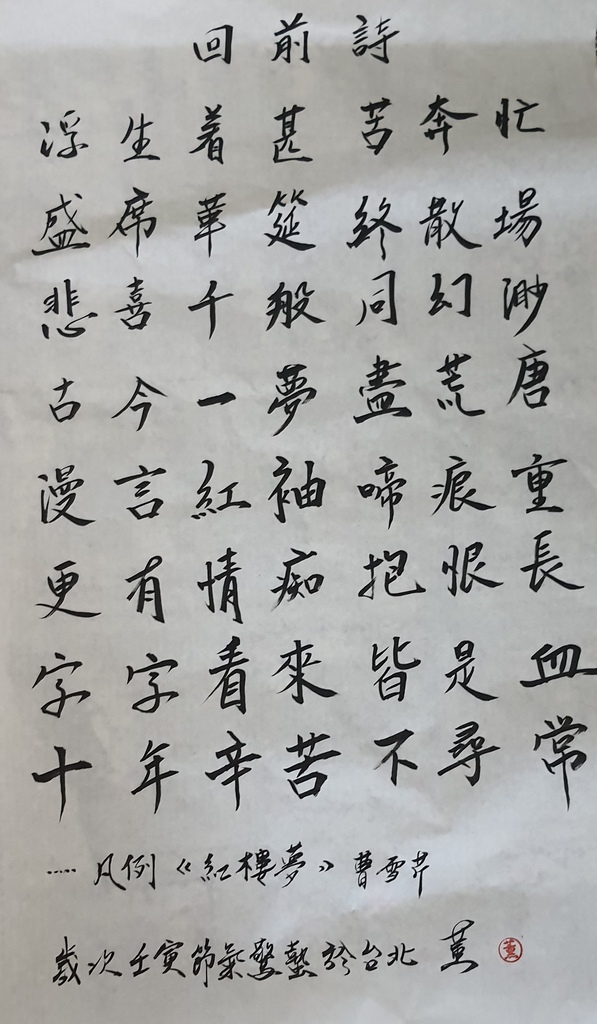 回前詩
浮生着甚苦奔忙
盛席華筵終散場
悲喜千般同幻渺
古今一夢盡荒唐
漫言紅袖啼痕重
更有情痴抱恨長
字字看來皆是血
十年辛苦不尋常
..... 凡例《紅樓夢》曹雪芹
歲次壬寅節氣驚蟄於台北